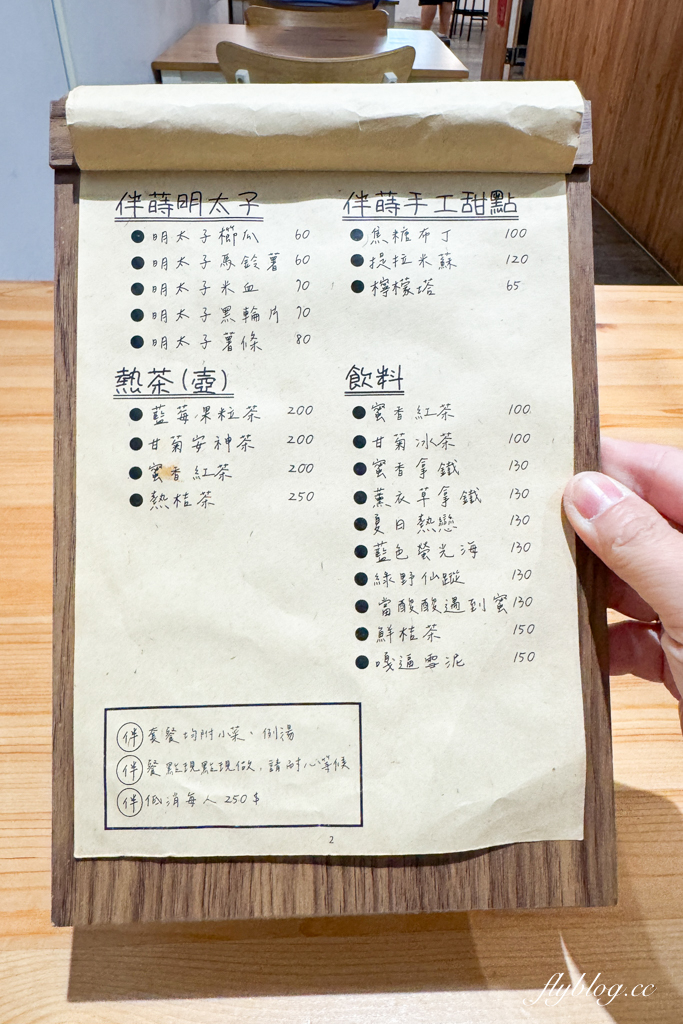 伴蒔明太子
明太子櫛瓜 60
明太子馬鈴薯 60
明太子米血 70
明太子黑輪片 70
明太子薯條 80
熱茶(壺)
藍莓果粒茶 200
甘菊安神茶 200
蜜香紅茶 200
熱桔茶 250
伴蒔手工甜點
焦糖布丁 100
提拉米蘇 120
檸檬塔 65
飲料
蜜香紅茶 100
甘菊冰茶 100
蜜香拿鐵 130
薰衣草拿鐵 130
夏日熱戀 130
藍色螢光海 130
綠野仙蹤 130
當酸酸遇到蜜 130
鮮桔茶 150
嘎逼雪泥 150
伴 套餐均附小菜、例湯
伴 餐點現點現做,請耐心等候
伴 低消每人250$
2
flyblog.cc